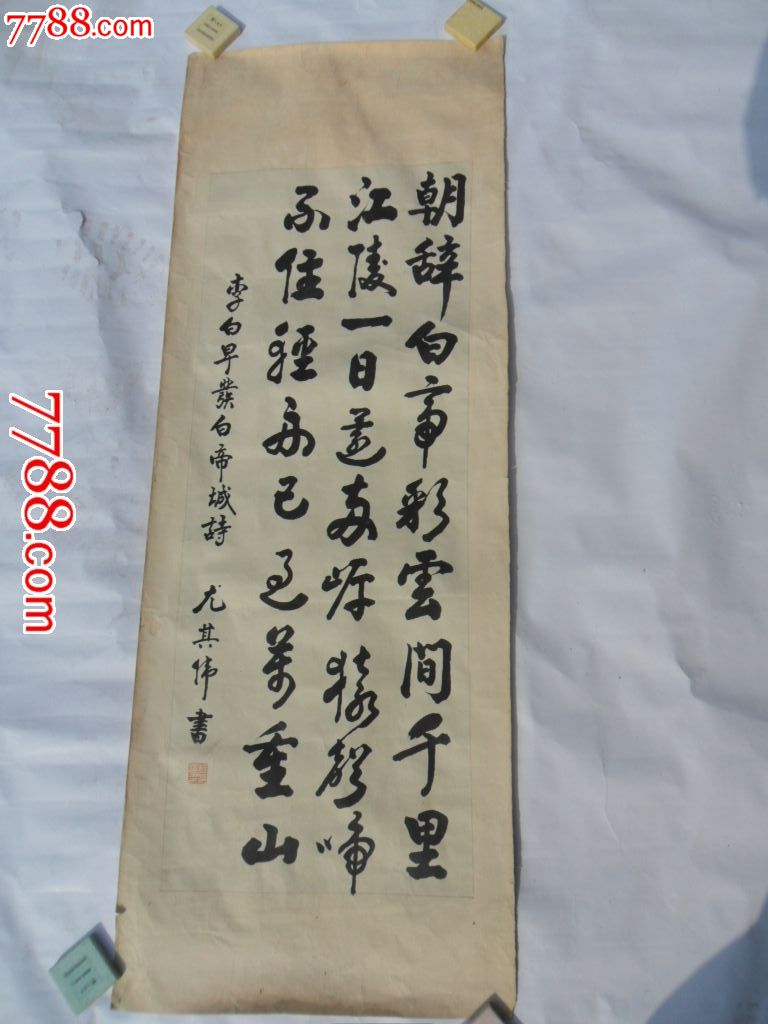 7788.com
朝辞白帝彩雲間千里
江陵一日還兩岸猿聲啼
不住輕舟已過萬重山
李白早發白帝城詩 尤其伟書
7788.com